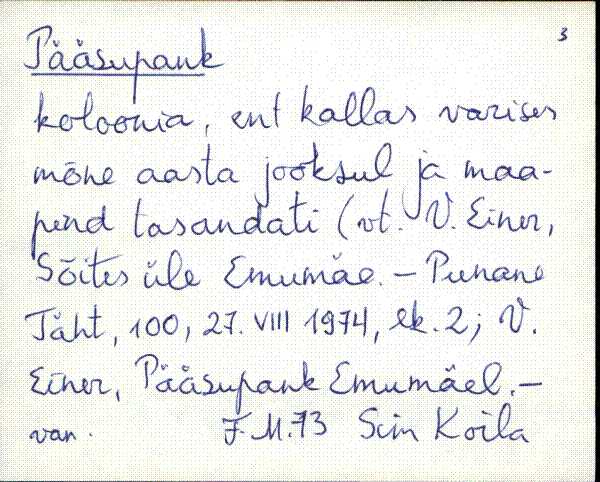 3
Pääsupank
koloonia, ent kallas varises
mõne aasta jooksul ja maa-
pind tasandati (vt. V. Einer,
Sõites üle Emumäe. – Punane
Täht, 100, 27. VIII 1974, lk. 2; V.
Einer, Pääsupank Emumäel. –
van. J. M. 73 Siin Koila